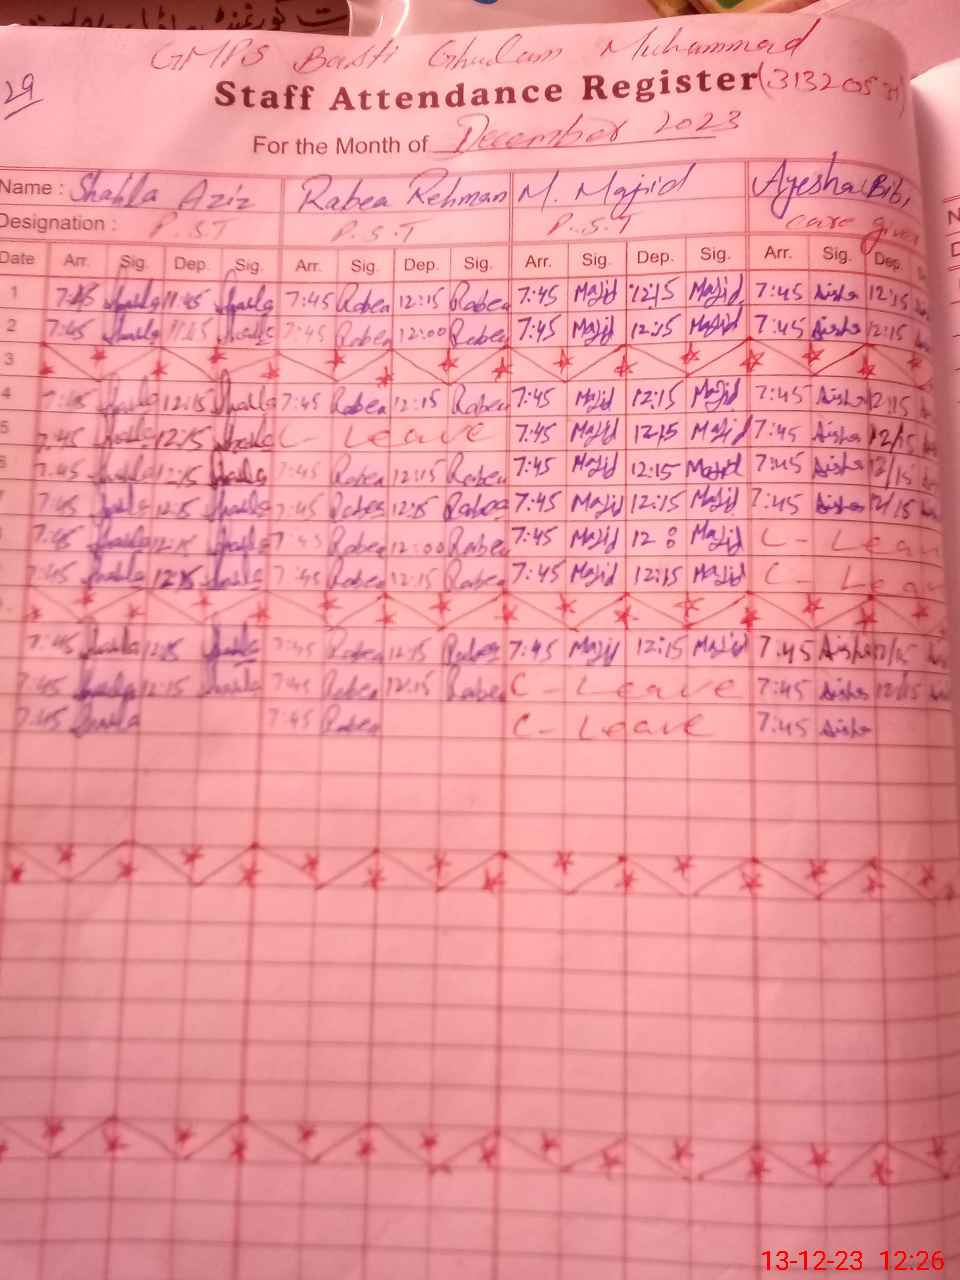 GMPS Basti Ghulam Muhammad
29
Staff Attendance Register (31320531)
For the Month of December 2023
Name : Shahla Aziz Rabea Rehman M. Majid Ayesha Bibi
Designation : P.S.T P.S.T P.S.T care giver
Date Arr. Sig. Dep. Sig. Arr. Sig. Dep. Sig. Arr. Sig. Dep. Sig. Arr. Sig. Dep.
1 7:45 Shaila 11:45 Shaila 7:45 Rabea 12:15 Rabea 7:45 Majid 12:15 Majid 7:45 Aisha 12:15
2 7:45 Shaila 7:45 Rabea 12:00 Rabea 7:45 Majid 12:15 Majid 7:45 Aisha 12:15
3
4 7:45 Shaila 12:15 Shaila 7:45 Rabea 12:15 Rabea 7:45 Majid 12:15 Majid 7:45 Aisha 12:15
5 7:45 Shaila 12:15 Shaila C- Leave 7:45 Majid 12:15 Majid 7:45 Aisha 12/15
7:45 Shaila 12:15 Shaila 7:45 Rabea 12:15 Rabea 7:45 Majid 12:15 Majid 7:45 Aisha 12/15
7:45 Shaila 12:15 Shaila 7:45 Rabea 12:15 Rabea 7:45 Majid 12:15 Majid 7:45 Aisha 12/15
7:45 Shaila 12:15 Shaila 7:45 Rabea 12:00 Rabea 7:45 Majid 12:8 Majid C- Leav
7:45 Shaila 12:15 Shaila 7:45 Rabea 12:15 Rabea 7:45 Majid 12:15 Majid C- Leav
7:45 Shaila 12:15 Shaila 7:45 Rabea 12:15 Rabea 7:45 Majid 12:15 Majid 7:45 Aisha 12/15
7:45 Shaila 12:15 Shaila 7:45 Rabea 12:15 Rabea C- Leave 7:45 Aisha 12/15
7:45 Shaila 7:45 Rabea C- Leave 7:45 Aisha
13-12-23 12:26